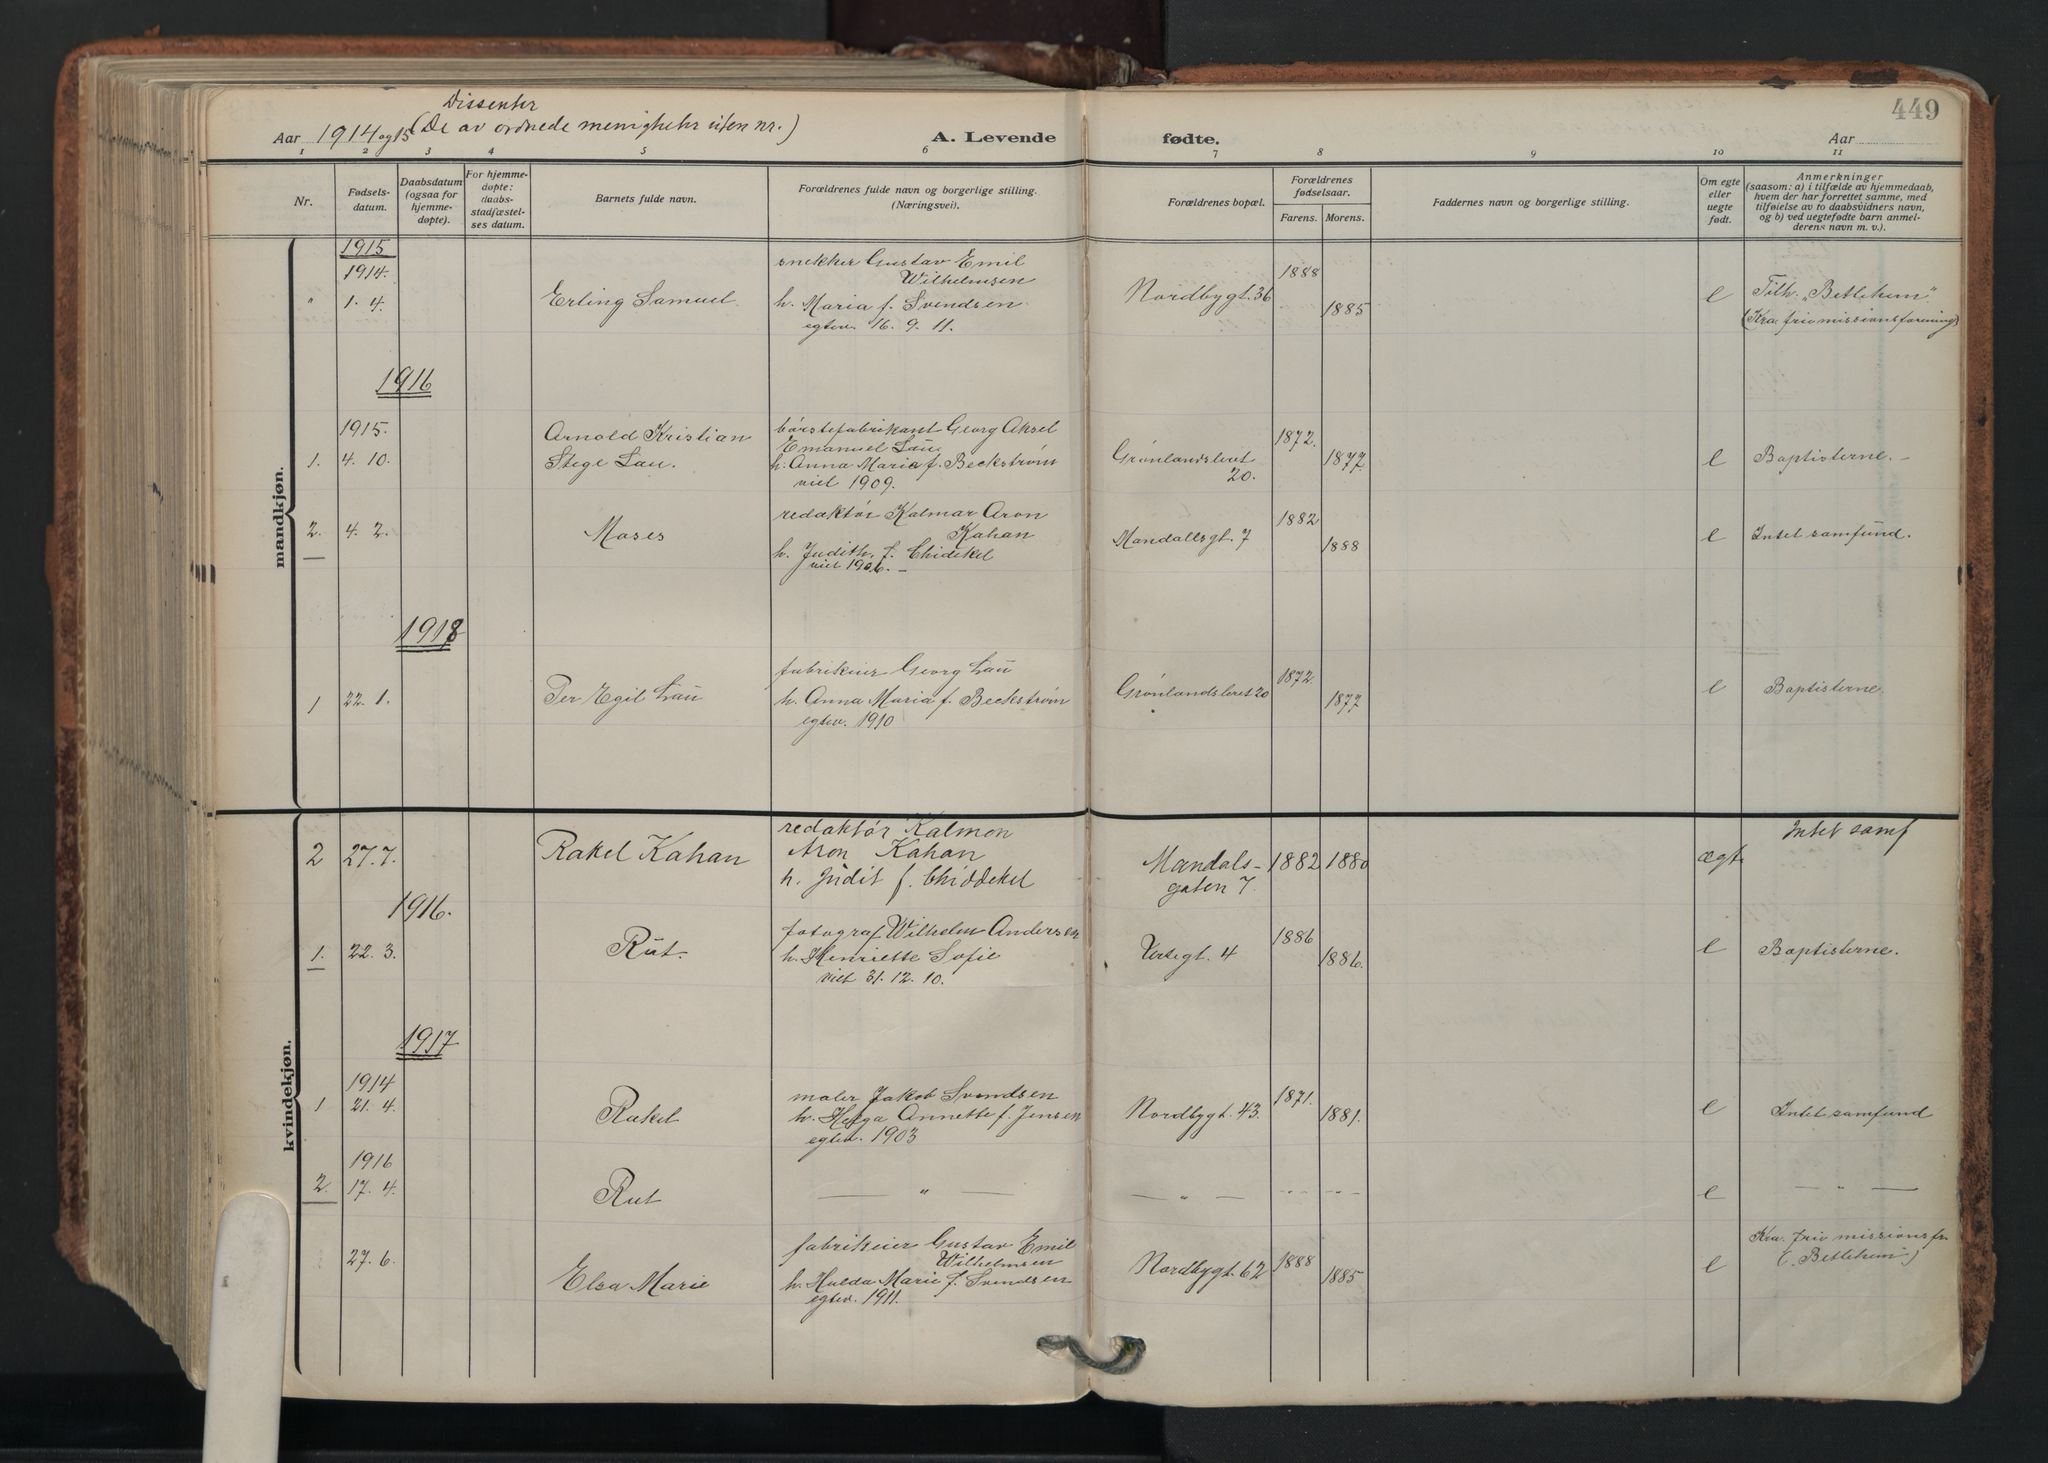 449
Dissenter
Aar 1914 og 15 (De av ordnede menigheter uten nr.)
A. Levende fødte.
Aar
1 2 3 4 5 6 7 8 9 10 11
Nr.
Fødsels-
datum.
Daabsdatum
(ogsaa for
hjemme-
døpte).
For hjemme-
døpte:
daabs-
stadfæstel-
ses datum.
Barnets fulde navn.
Forældrenes fulde navn og borgerlige stilling.
(Næringsvei).
Forældrenes bopæl.
Forældrenes
fødselsaar.
Farens. Morens.
Faddernes navn og borgerlige stilling.
Om egte
eller
uegte
født.
Anmerkninger
(saasom: a) i tilfælde av hjemmedaab,
hvem der har forrettet samme, med
tilføielse av to daabsvidners navn,
og b) ved uegtefødte barn anmel-
derens navn m. v.).
mandkjøn.
1915
1914.
" 1. 4.
Erling Samuel.
snekker Gustav Emil
Wilhelmsen
h. Maria f. Svendsen
egtev. 16. 9. 11.
Nordbygt. 36
1888
1885
e
Tilh. "Betlehem"
(Kra. frie missionsforening)
1916
1915.
1. 4. 10.
Arnold Kristian
Stege Lau.
børstefabrikant Georg Aksel
Emanuel Lau
h. Anna Maria f. Beckstrøm
viet 1909.
Grønlandsleret
20.
1872.
1877
e
Baptisterne. -
2. 4. 2.
Moses
redaktør Kalmar Aron
Kahan
h. Judith f. Chidekel
viet 1906. -
Mandallsgt. 7
1882
1888
e
Intet samfund.
1918
1 22. 1.
Per Egil Lau
fabrikeier Georg Lau
h. Anna Maria f. Beckstrøm
egtev. 1910
Grønlandsleret 20
1872.
1877
e
Baptisterne.
kvindekjøn.
2 27. 7.
Rakel Kahan
redaktør Kalmon
Aron Kahan
h. Judit f. Chiddekel
Mandals-
gaten 7.
1882 1880
ægt
Intet samf
1916.
1. 22. 3.
Rut.
fotograf Wilhelm Andersen
h. Henriette Sofie
viet 31. 12. 10.
4
1886
1886.
e
Baptisterne.
1917
1914
1 21. 4.
Rakel
maler Jakob Svendsen
h. Helga Annette f. Jensen
egtev. 1903
Nordbygt. 43.
1871.
1881.
e
Intet samfund
1916
2. 17. 4.
Rut
— " —
— " —
-"- -"-
e
— " —
27. 6.
Elsa Marie
fabrikeier Gustav Emil
Wilhelmsen
h. Hulda Marie f. Svendsen
egtev. 1911.
Nordbygt. 62
1888
1885
e
Kra. frie missionsfr.
("Betlehem")